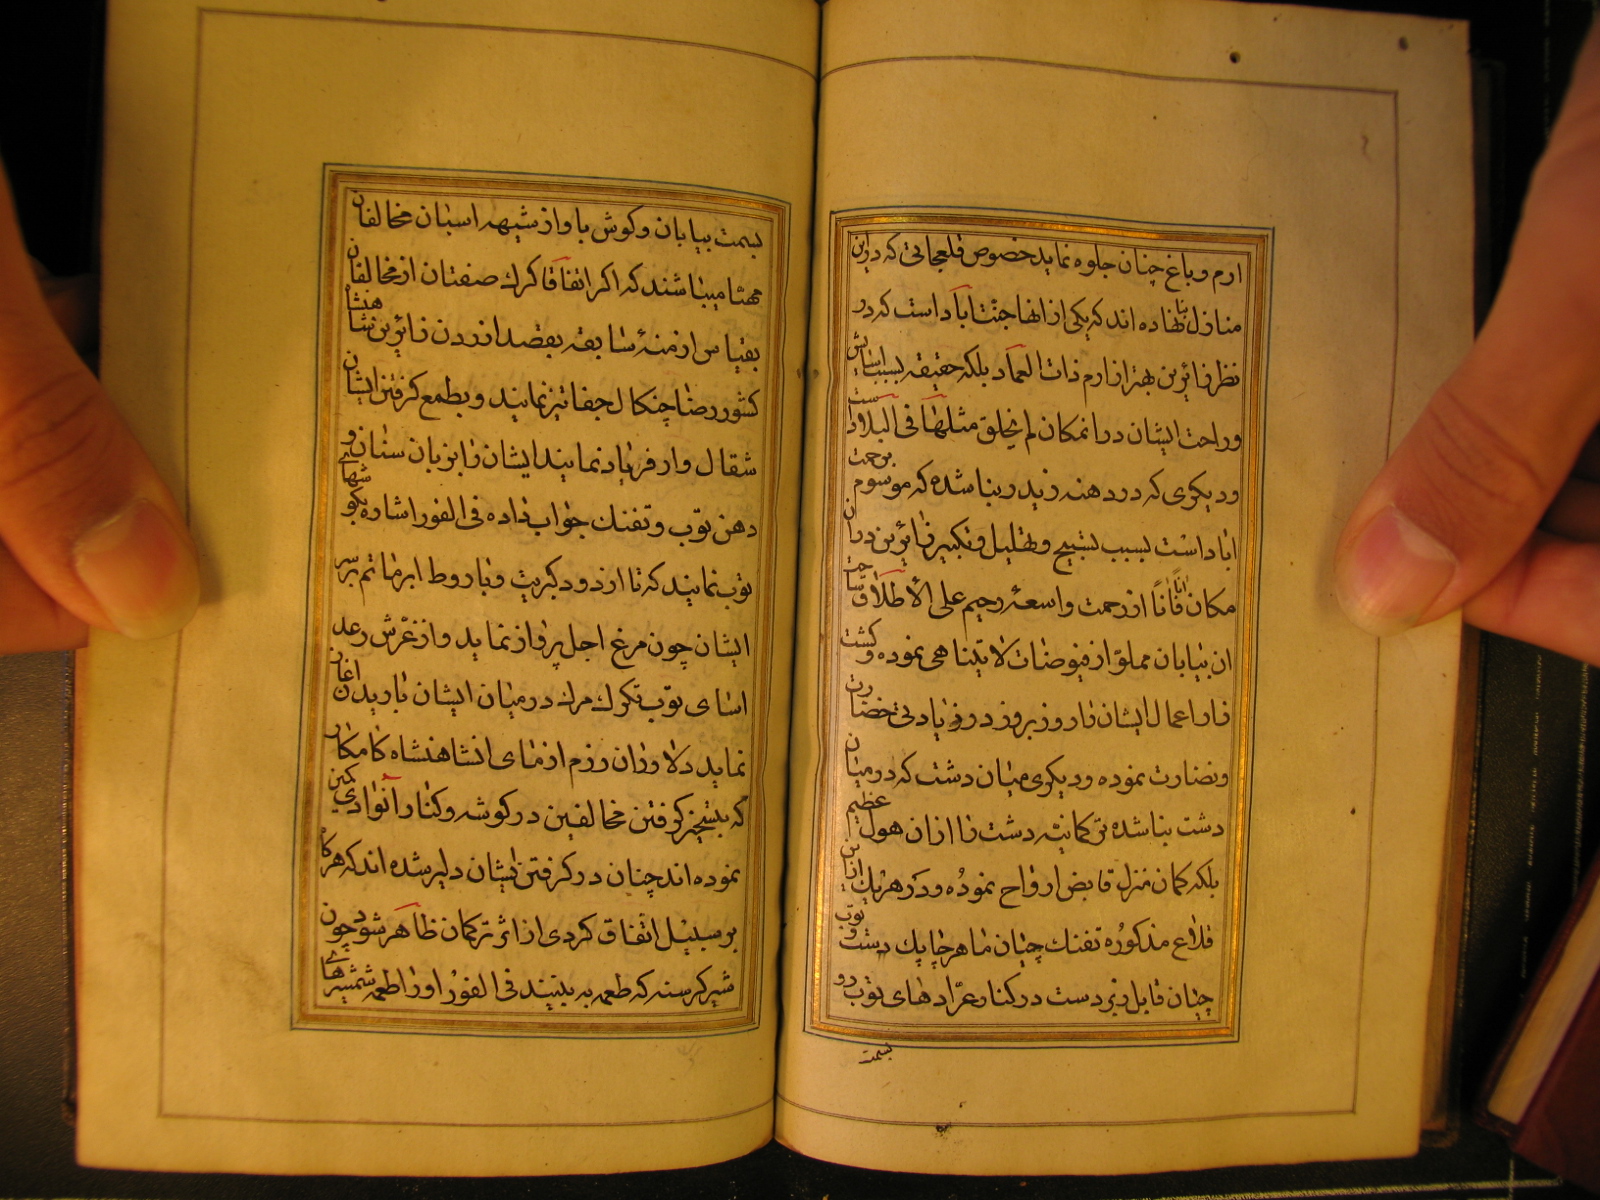 ارم و باغ چنان جلوه نماید خصوص قلعجاتی که درین
منازل بنا نهاده اند که یکی از انها جنت اباد است که در
نظر زائرین بهتر از ارم ذات العماد بلکه حقیقه بسبب اسایش
و راحت ایشان در انمکان لم یخلق مثلها فی البلاد است
و دیکری که در دهنه زیدر بنا شده که موسوم برحمت
اباد است بسبب تسبیح و تهلیل و تکبیر زائرین در ان
مکان اناً فاناً از رحمت واسعۀ رحیم علی الاطلاق ساحت
ان بیابان مملو از فیوضات لایتناهی نموده و کشت
زار اعمال ایشان را روز بروز در زیادتی خضارت
و نضارت نموده و دیکری میان دشت که در میان
دشت بنا شده ترکمانیه دشت را از ان هول عظیم
بلکه کمان منزل قابض ارواح نموده و در هریك ازین
قلاع مذکوره تفنك چیان ماهر چابك دست و توپ
چیان قابل زبردست در کنار عرّادهای توپ رو
بسمت
بسمت بیابان و کوش باواز شیهه اسبان مخالفان
مهیا میباشند که اکر اتفاقا کرك صفتان از مخالفان
بقیاس ازمنۀ سابقه بقصد ازردن زائرین شاهنشاه
کشور رضا چنکال جفا تیز نمایند و بطمع کرفتن ایشان
شقال وار فریاد نمایند ایشان را بزبان سنان و
دهن توپ و تفنك جواب داده فی الفور اشاره بکوی شهابی
توپ نمایند که تا از دود کبریت و باروط ابر ماتم بر سر
ایشان چون مرغ اجل پرواز نماید و از غرش رعد
اسای توپ تکرك مرك در میان ایشان باریدن اغاز
نماید دلاوران رزم ازمای انشاهنشاه کامکار
که بتسخیر کرفتن مخالفین در کوشه و کنار انوادی کمین
نموده اند چنان در کرفتن ایشان دلیر شده اند که هرکاه
بر سبیل اتفاق کردی از اثر ترکمان ظاهر شود چون
شیر کرسنه که طعمه به بیند فی الفور او را طعمه شمشیرهای